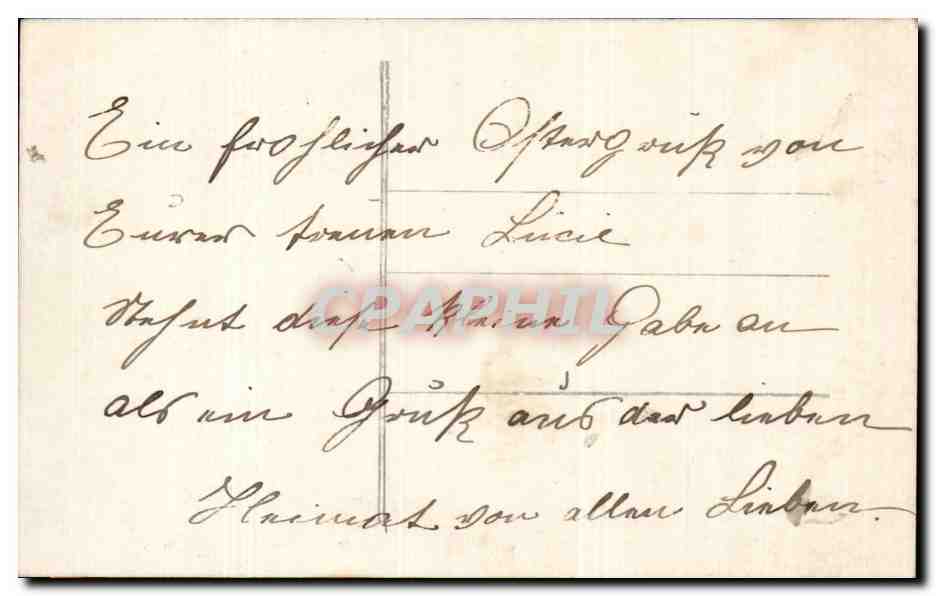 Ein frohlicher Ostergruß von
Eurer treuen Lucie
Nehmt diese kleine Gabe an
als ein Gruß aus der lieben
Heimat von allen Lieben.
CPAPHIL